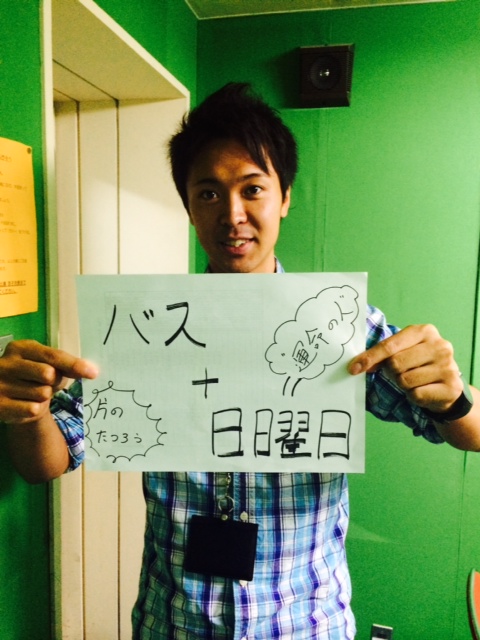 バス
運命の人
+
片の
たつろう
日曜日